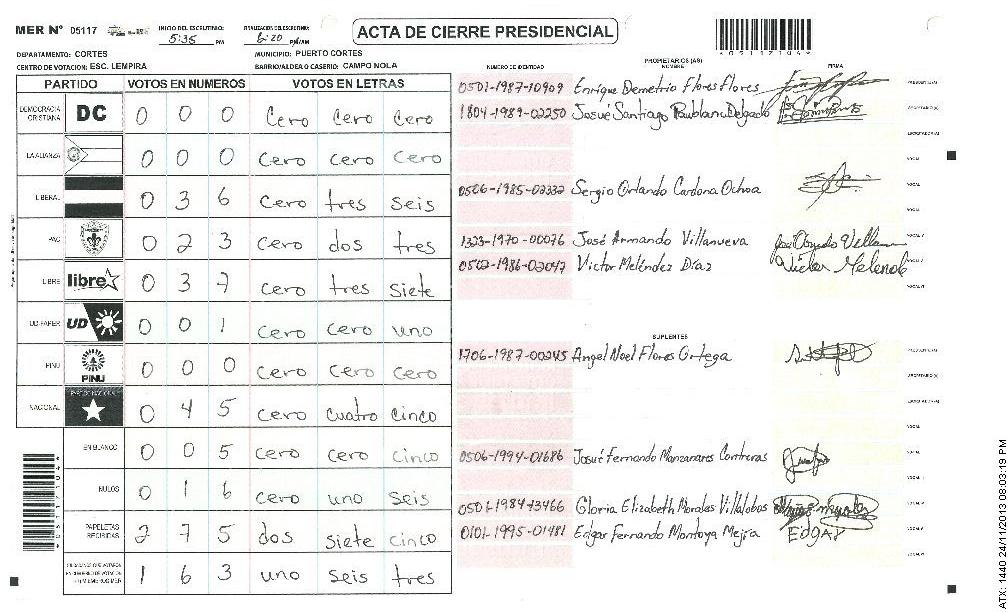 MER Nº 05117
INICIO DEL ESCRUTINIO: 5:35 PM
FINALIZACION DEL ESCRUTINIO: 6:20 PM/AM
ACTA DE CIERRE PRESIDENCIAL
DEPARTAMENTO: CORTES
MUNICIPIO: PUERTO CORTES
CENTRO DE VOTACION: ESC. LEMPIRA
BARRIO/ALDEA O CASERIO: CAMPO NOLA
PARTIDO VOTOS EN NUMEROS VOTOS EN LETRAS
DEMOCRACIA CRISTIANA DC 0 0 0 Cero Cero Cero
LA ALIANZA 0 0 0 Cero cero Cero
LIBERAL 0 3 6 Cero tres seis
PAC 0 2 3 Cero dos tres
LIBRE libre 0 3 7 Cero tres siete
UD-FAPER UD 0 0 1 Cero Cero uno
PINU PINU 0 0 0 Cero Cero Cero
NACIONAL PARTIDO NACIONAL 0 4 5 Cero Cuatro Cinco
EN BLANCO 0 0 5 Cero Cero Cinco
NULOS 0 1 6 Cero uno seis
PAPELETAS RECIBIDAS 2 7 5 dos siete cinco
1 6 3 uno seis tres
NUMERO DE IDENTIDAD
PROPIETARIOS (AS)
NOMBRE
FIRMA
0501-1987-10909 Enrique Demetrio Flores Flores
1804-1989-02250 Josué Santiago
0506-1985-02332 Sergio Orlando Cardona Ochoa
1323-1970-00076 José Armando Villanueva
0502-1986-02047 Victor Meléndez Díaz
SUPLENTES
1706-1987-00245 Angel Noel Flores Ortega
0506-1994-01686 Josué Fernando Manzanares Contreras
0501-1984-13466 Gloria Elizabeth Morales Villalobos
0101-1995-01481 Edgar Fernando Montoya Mejía EDgAr
ATX: 1440 24/11/2013 08:03:19 PM